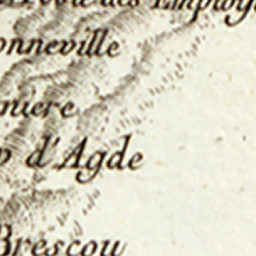 des Employe
onneville
niere
p d'Agde
Brescou